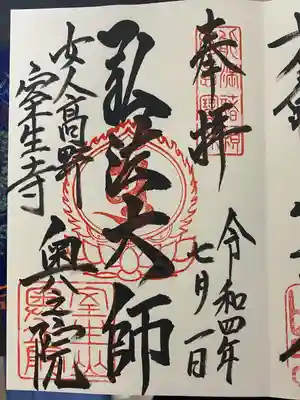 奉拝
令和四年
七月一日
弘法大師
奥之院
女人高野
室生寺